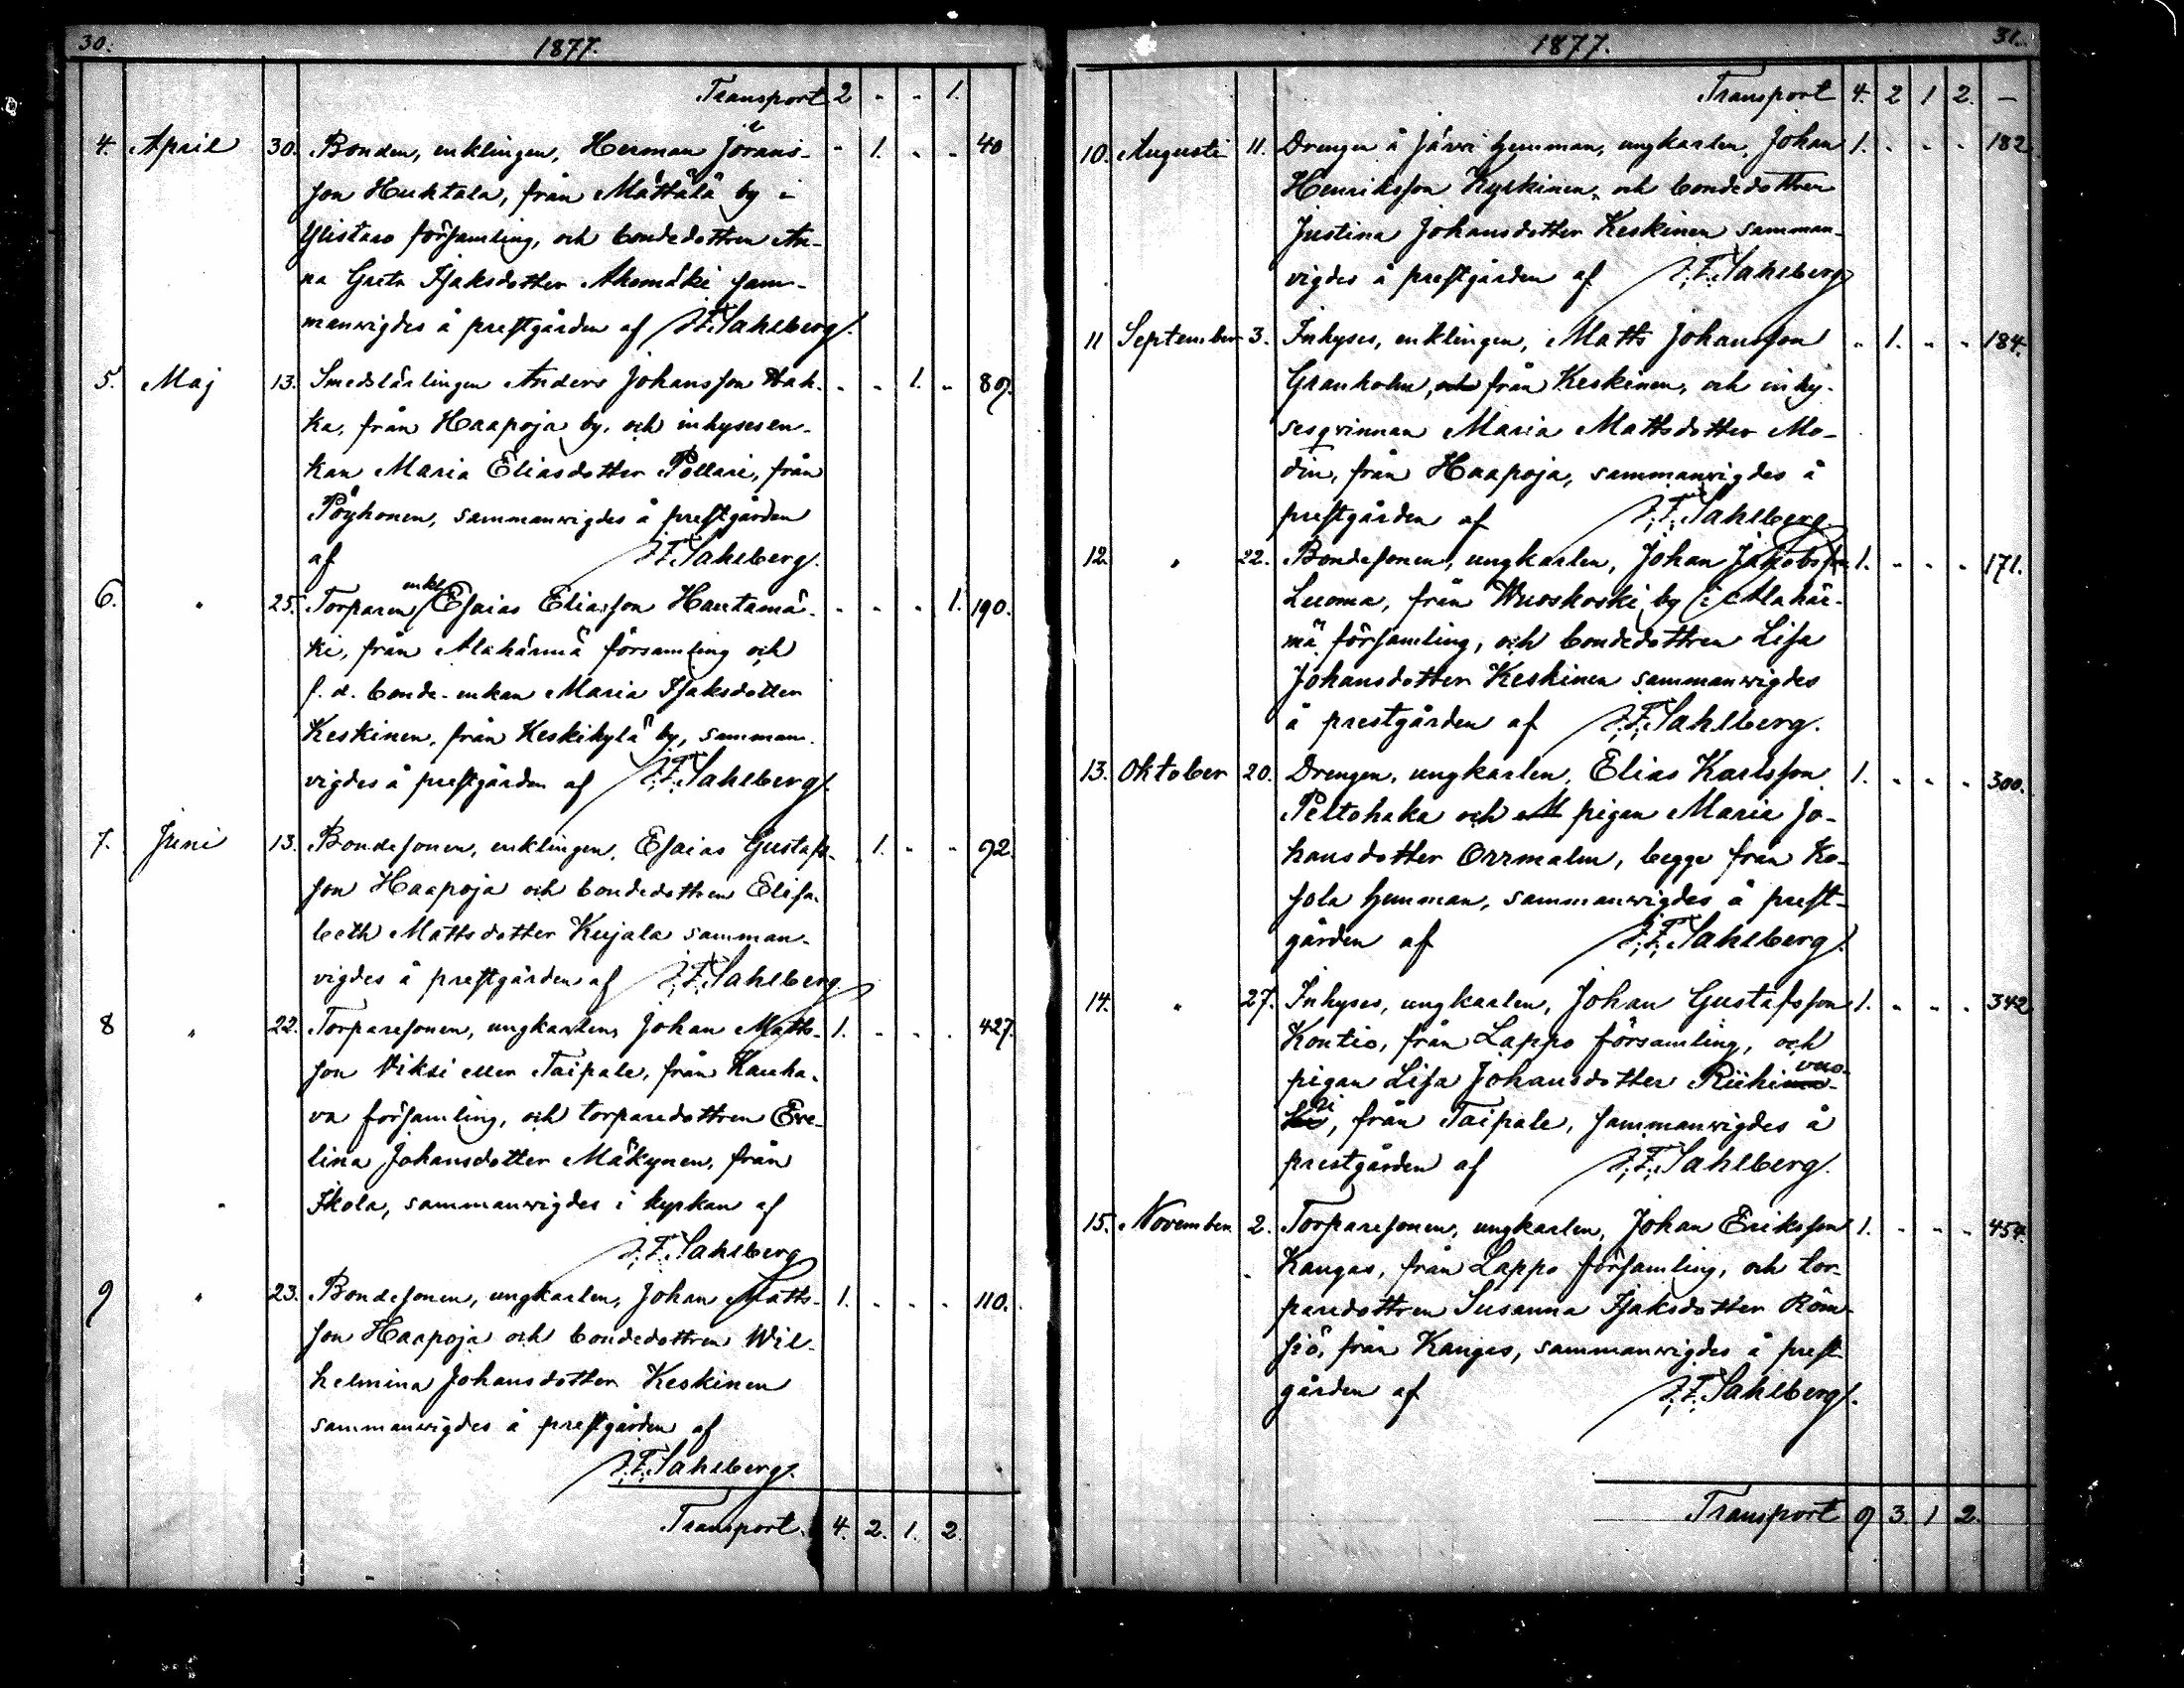 30.
1877.
Transport 2 " " 1.
4. April 30. Bonden, enklingen, Herman Jörans- " 1. " " 40
son Huhtala, från Mättälä by i
Ylistaro församling, och bondedottren An-
na Greta Isaksdotter Ahomäki sam-
manvigdes å prestgården af J.F. Sahlberg.
5. Maj 13. Smedslärlingen Anders Johansson Hak- " " 1. " 89.
ka, från Haapoja by, och inhysesen-
kan Maria Eliasdotter Pollari, från
Pöyhonen, sammanvigdes å prestgården
af J.F. Sahlberg.
enkl.
6. " 25. Torparen Esaias Eliasson Hautamä- " " " 1. 190.
ki, från Alahärmä församling och
f.d. bonde-enkan Maria Isaksdotter
Keskinen, från Keskikylä by, samman-
vigdes å prestgården af J.F. Sahlberg.
7. Juni 13. Bondesonen, enklingen, Esaias Gustafs- " 1. " " 92.
son Haapoja och bondedottren Elisa-
beth Mattsdotter Kujala samman-
vigdes å prestgården af J.F. Sahlberg
8 " 22. Torparesonen, ungkarlen, Johan Matts- 1. " " " 427.
son Viksi eller Taipale, från Kauha-
va församling, och torparedottren Eve-
lina Johansdotter Mäkynen, från
Skola, sammanvigdes i kyrkan af
J.F. Sahlberg
9 " 23. Bondesonen, ungkarlen, Johan Matts- 1. " " " 110.
son Haapoja och bondedottren Wil-
helmina Johansdotter Keskinen
sammanvigdes å prestgården af
J.F. Sahlberg.
Transport. 4. 2. 1. 2.
1877.
31.
Transport 4. 2 1 2. —
10. Augusti 11. Drengen å Järvi hemman, ungkarlen, Johan 1. " " " 182.
Henriksson Kyrkinen, och bondedottren
Justina Johansdotter Keskinen samman-
vigdes å prestgården af J.F. Sahlberg
11 September 3. Inhyses, enklingen, Matts Johansson " 1. " " 184.
Granholm, och från Keskinen, och inhy-
sesqvinnan Maria Mattsdotter Mo-
din, från Haapoja, sammanvigdes å
prestgården af J.F. Sahlberg.
12. " 22. Bondesonen, ungkarlen, Johan Jakobsson 1. " " " 171.
Luoma, från Wuoskoski by i Alahär-
mä församling, och bondedottren Lisa
Johansdotter Keskinen sammanvigdes
å prestgården af J.F. Sahlberg.
13. Oktober 20. Drengen, ungkarlen, Elias Karlsson 1. " " " 300.
Peltohaka och M pigan Maria Jo-
hansdotter Orrmalm, begge från Ko-
sola hemman, sammanvigdes å prest-
gården af J.F. Sahlberg.
14. " 27. Inhyses, ungkarlen, Johan Gustafsson 1. " " " 342
Kontio, från Lappo församling, och
pigan Lisa Johansdotter Riihi vuo-
ri, från Taipale, sammanvigdes å
prestgården af J.F. Sahlberg.
15. November 2. Torparesonen, ungkarlen, Johan Eriksson 1. " " " 454.
Kangas, från Lappo församling, och tor-
paredottren Susanna Isaksdotter Röm-
siö, från Kangas, sammanvigdes å prest-
gården af J.F. Sahlberg.
Transport 9 3. 1 2.